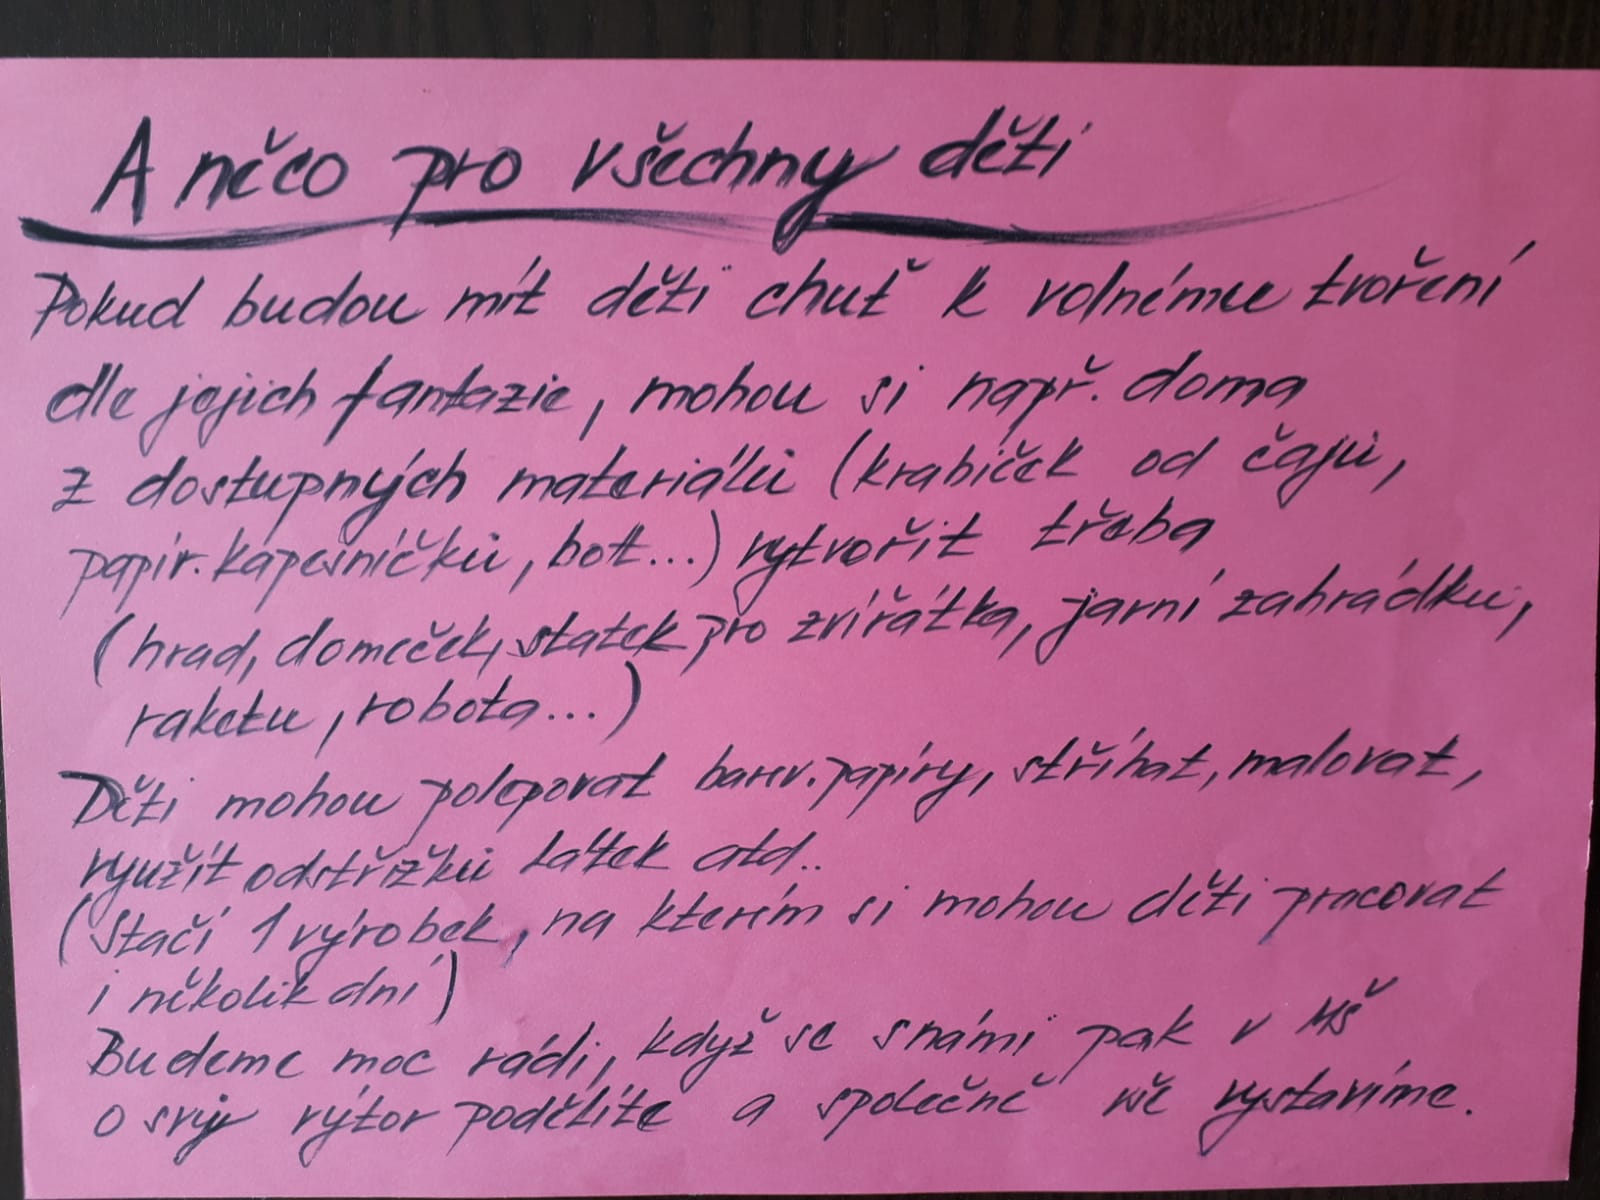 A něco pro všechny děti
Pokud budou mít děti chuť k volnému tvoření
dle jejich fantazie, mohou si např. doma
z dostupných materiálů (krabiček od čajů,
papír. kapesníčků, bot...) vytvořit třeba
(hrad, domeček, statek pro zvířátka, jarní zahrádku,
raketu, robota...)
Děti mohou polepovat barev. papíry, stříhat, malovat,
využít odstřižků látek atd..
(Stačí 1 výrobek, na kterém si mohou děti pracovat
i několik dní)
Budeme moc rádi, když se s námi pak v MŠ
o svůj výtvor podělíte a společně vše vystavíme.